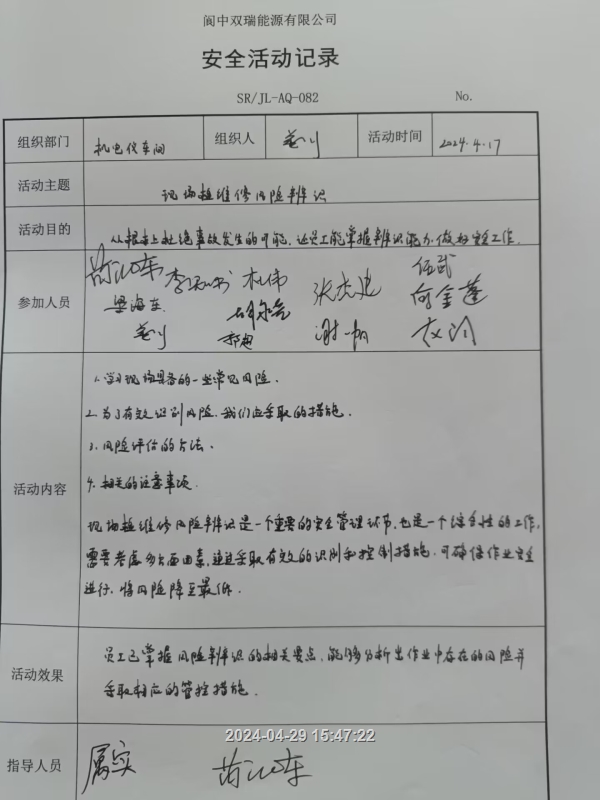 阆中双瑞能源有限公司
安全活动记录
SR/JL-AQ-082 No.
组织部门 机电仪车间 组织人 活动时间 2024.4.17
活动主题 现场检维修风险辨识
活动目的 从根本上杜绝事故发生的可能，让员工能掌握辨识能力，做好安全工作。
杜伟 伍武
参加人员 梁海东 何金蓬
谢一帆
1.学习现场具备的一些常见风险。
2.为了有效识别风险，我们应采取的措施。
3.风险评估的方法。
活动内容 4.相关的注意事项。
现场检维修风险辨识是一个重要的安全管理环节，也是一个综合性的工作，
需要考虑多方面因素，通过采取有效的识别和控制措施，可确保作业安全
进行，将风险降至最低。
员工已掌握风险辨识的相关要点，能够分析出作业中存在的风险并
活动效果 采取相应的管控措施。
2024-04-29 15:47:22
指导人员 属实